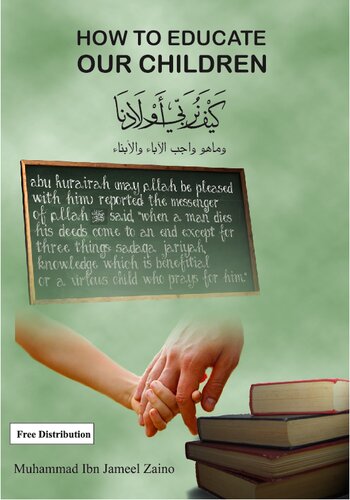 HOW TO EDUCATE
OUR CHILDREN
كَيْفَ نُرَبِّي أَوْلَادَنَا
وماهو واجب الآباء والأبناء
abu hurairah may allah be pleased
with him reported the messenger
of allah ﷺ said, "when a man dies
his deeds come to an end except for
three things: sadaqa jariyah,
knowledge which is beneficial
or a virtous child who prays for him."
Free Distribution
Muhammad Ibn Jameel Zaino